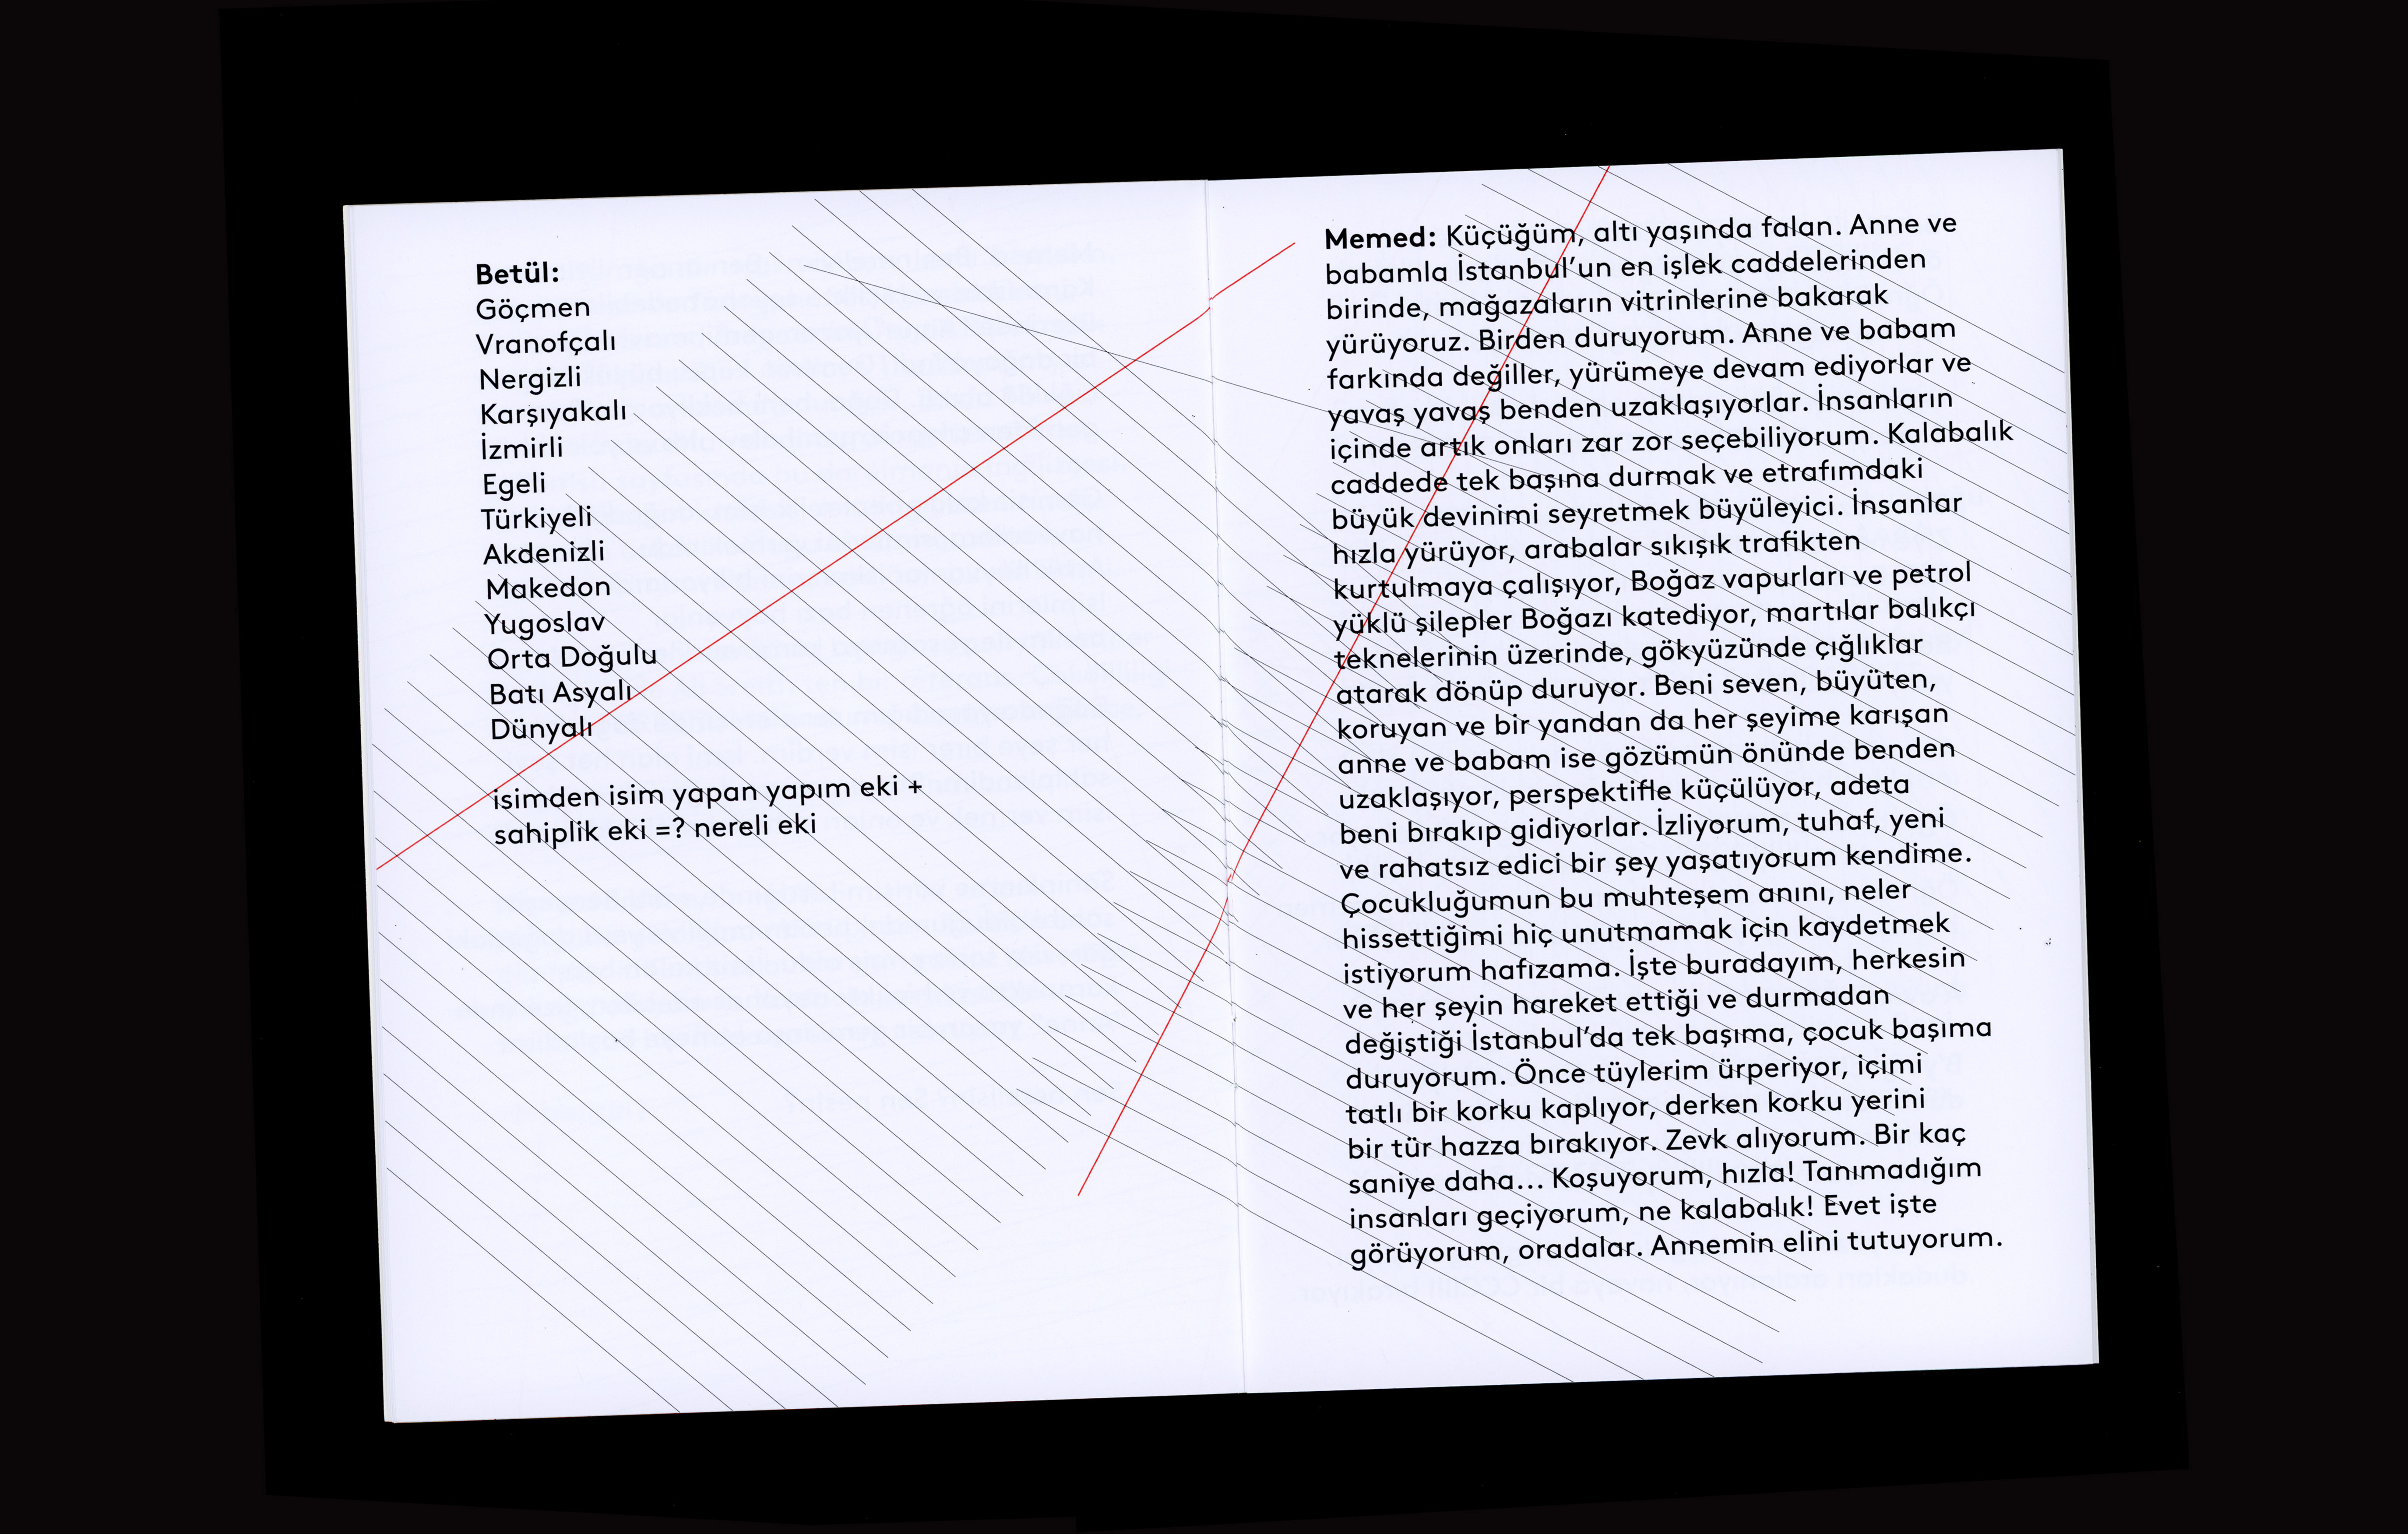 Betül:
Göçmen
Vranofçalı
Nergizli
Karşıyakalı
İzmirli
Egeli
Türkiyeli
Akdenizli
Makedon
Yugoslav
Orta Doğulu
Batı Asyalı
Dünyalı
isimden isim yapan yapım eki +
sahiplik eki =? nereli eki
Memed: Küçüğüm, altı yaşında falan. Anne ve
babamla İstanbul’un en işlek caddelerinden
birinde, mağazaların vitrinlerine bakarak
yürüyoruz. Birden duruyorum. Anne ve babam
farkında değiller, yürümeye devam ediyorlar ve
yavaş yavaş benden uzaklaşıyorlar. İnsanların
içinde artık onları zar zor seçebiliyorum. Kalabalık
caddede tek başına durmak ve etrafımdaki
büyük devinimi seyretmek büyüleyici. İnsanlar
hızla yürüyor, arabalar sıkışık trafikten
kurtulmaya çalışıyor, Boğaz vapurları ve petrol
yüklü şilepler Boğazı katediyor, martılar balıkçı
teknelerinin üzerinde, gökyüzünde çığlıklar
atarak dönüp duruyor. Beni seven, büyüten,
koruyan ve bir yandan da her şeyime karışan
anne ve babam ise gözümün önünde benden
uzaklaşıyor, perspektifle küçülüyor, adeta
beni bırakıp gidiyorlar. İzliyorum, tuhaf, yeni
ve rahatsız edici bir şey yaşatıyorum kendime.
Çocukluğumun bu muhteşem anını, neler
hissettiğimi hiç unutmamak için kaydetmek
istiyorum hafızama. İşte buradayım, herkesin
ve her şeyin hareket ettiği ve durmadan
değiştiği İstanbul’da tek başıma, çocuk başıma
duruyorum. Önce tüylerim ürperiyor, içimi
tatlı bir korku kaplıyor, derken korku yerini
bir tür hazza bırakıyor. Zevk alıyorum. Bir kaç
saniye daha... Koşuyorum, hızla! Tanımadığım
insanları geçiyorum, ne kalabalık! Evet işte
görüyorum, oradalar. Annemin elini tutuyorum.